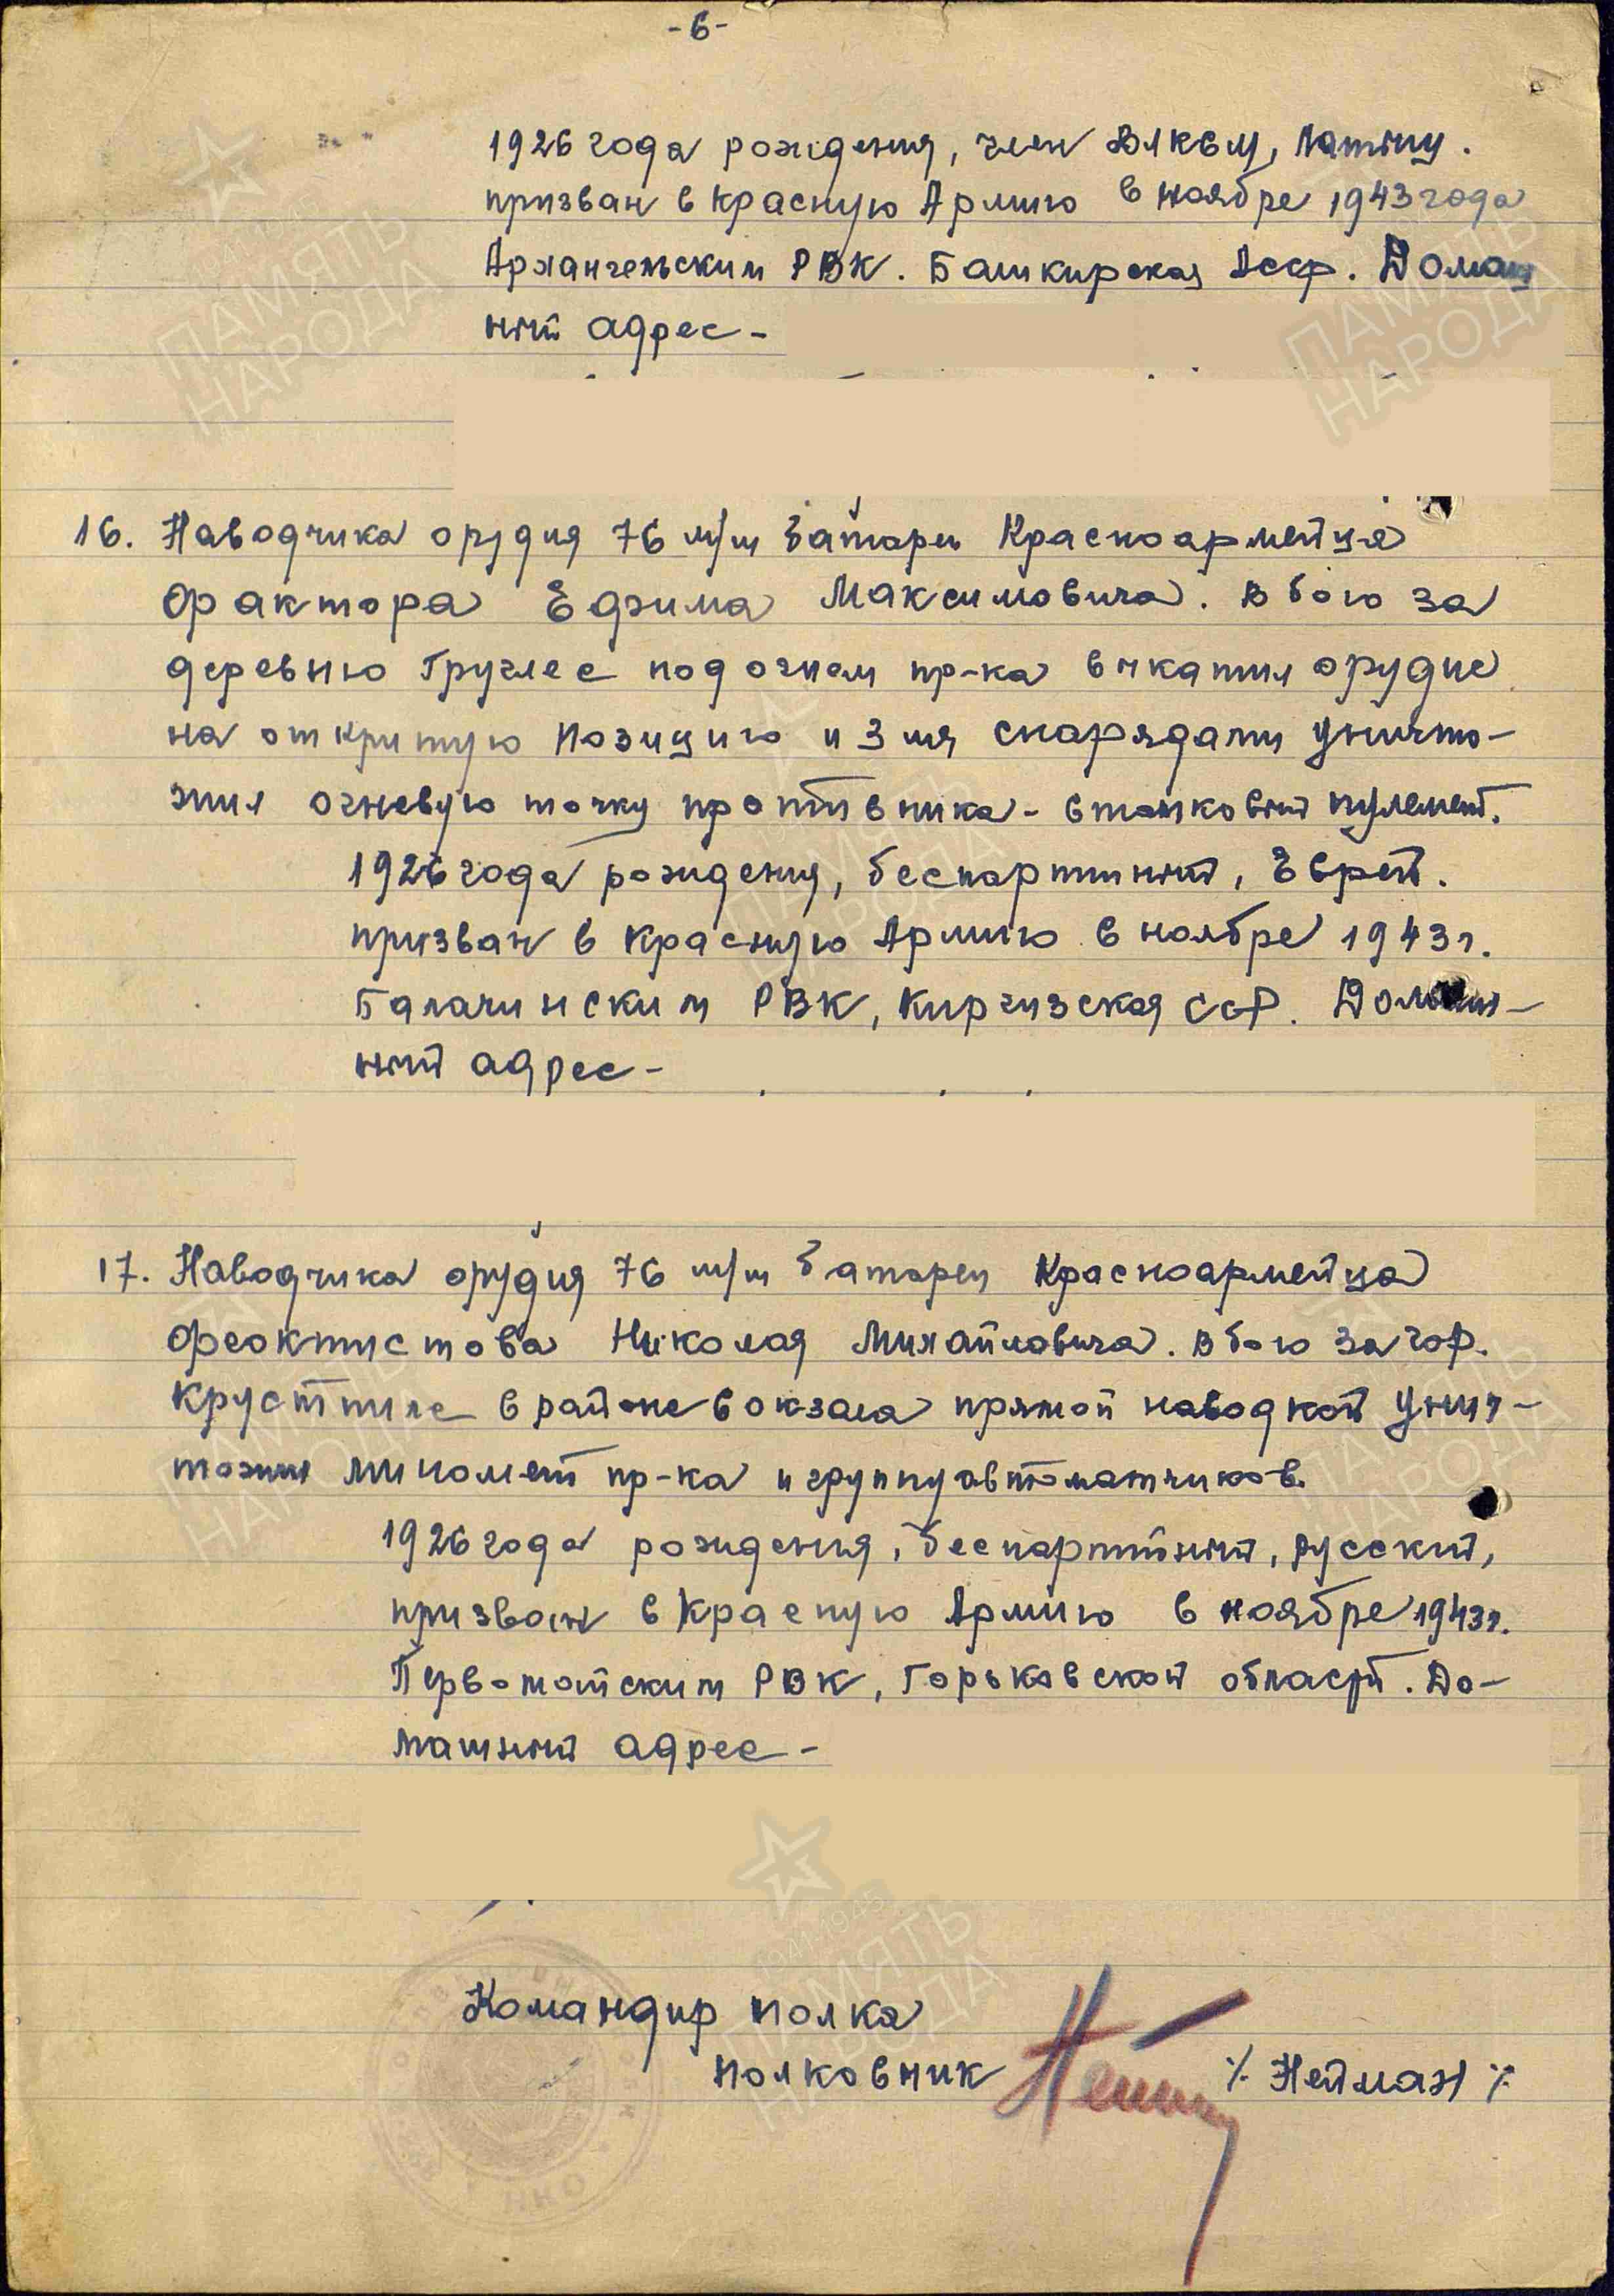 -6-
1926 года рождения, член ВЛКСМ, латыш.
призван в Красную Армию в ноябре 1943 года
Архангельским РВК. Башкирская Асср. Домаш
ний адрес-
16. Наводчика орудия 76 м/м батареи Красноармейца
Фактора Ефима Максимовича. В бою за
деревню Груглес под огнем пр-ка выкатил орудие
на открытую позицию и 3 мя снарядами уничто-
жил огневую точку противника - станковый пулемет.
1926 года рождения, беспартийный, Еврей.
призван в Красную Армию в ноябре 1943 г.
Балачинским РВК, Киргизская ССР. Домаш-
ний адрес-
17. Наводчика орудия 76 м/м батареи Красноармейца
Феоктистова Николая Михайловича. В бою за гор.
Крустпилс в районе вокзала прямой наводкой унич-
тожил миномет пр-ка и группу автоматчиков.
1926 года рождения, беспартийный, русский,
призван в Красную Армию в ноябре 1943 г.
Первомайским РВК, Горьковской области. До-
машний адрес-
Командир полка
полковник
⁒ Нейман ⁒
ПАМЯТЬ
НАРОДА
ПАМЯТЬ
НАРОДА
ПАМЯТЬ
НАРОДА
ПАМЯТЬ
НАРОДА
ПАМЯТЬ
НАРОДА
1941-1945
ПАМЯТЬ
НАРОДА
НКО